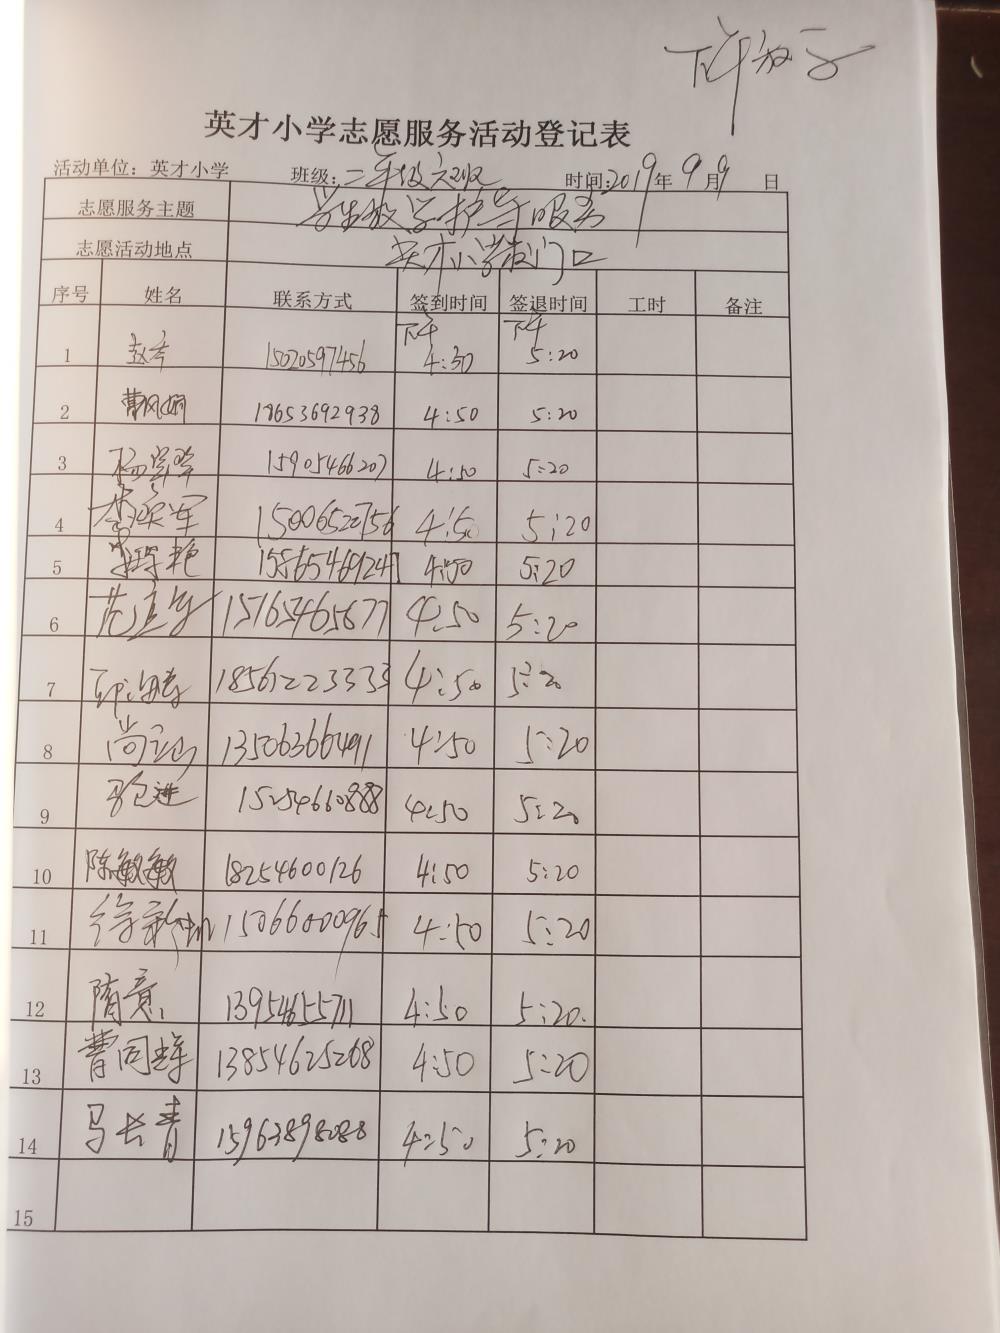 下午放学
英才小学志愿服务活动登记表
活动单位：英才小学 班级：二年级六班 时间：2019年9月9日
志愿服务主题 学生放学护导服务
志愿活动地点 英才小学校门口
序号 姓名 联系方式 签到时间 签退时间 工时 备注
1 15020597456 下午4:30 下午5:20
2 曹风娟 18653692938 4:50 5:20
3 15905466207 4:50 5:20
4 15006522756 4:50 5:20
5 15865469241 4:50 5:20
6 15165465677 4:50 5:20
7 18561223333 4:50 5:20
8 尚云山 13506366491 4:50 5:20
9 15254660888 4:50 5:20
10 陈敏敏 18254600126 4:50 5:20
11 15066000965 4:50 5:20
12 隋意 13954655711 4:50 5:20.
13 曹同峰 13854625268 4:50 5:20
14 马长青 15963898088 4:50 5:20
15